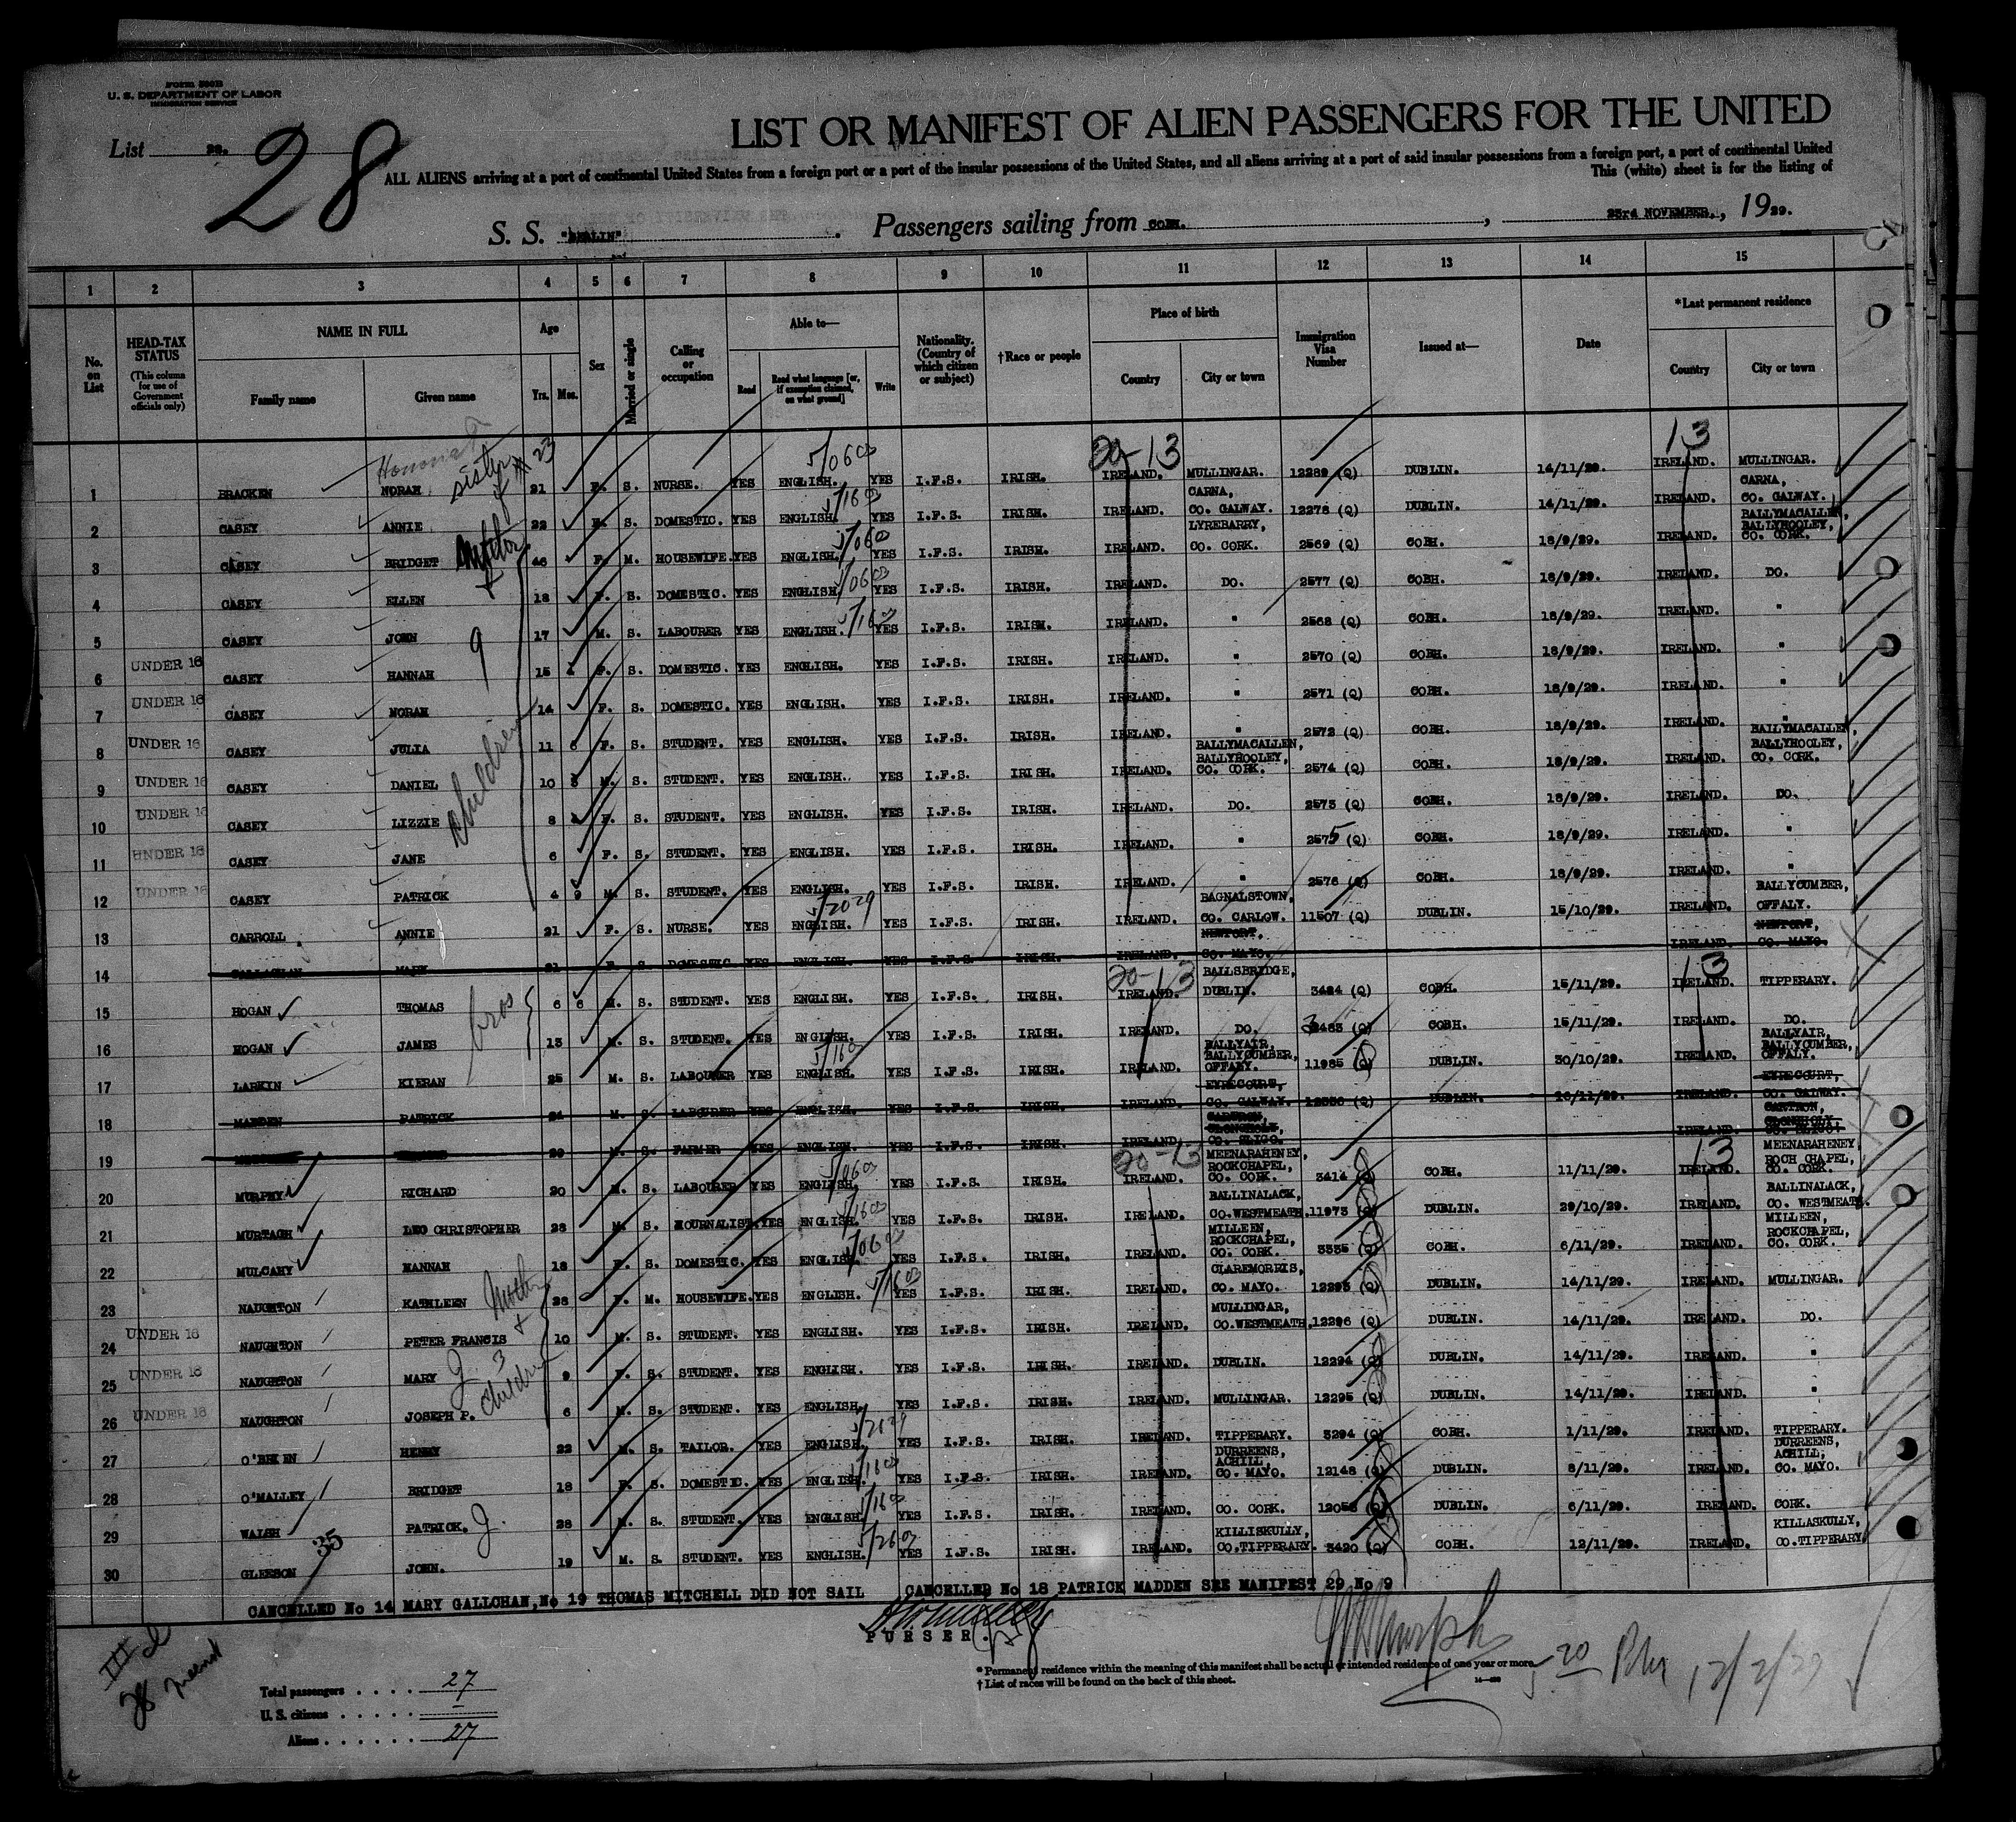 Form 500B
U. S. DEPARTMENT OF LABOR
IMMIGRATION SERVICE
List 22.
28
LIST OR MANIFEST OF ALIEN PASSENGERS FOR THE UNITED
ALL ALIENS arriving at a port of continental United States from a foreign port or a port of the insular possessions of the United States, and all aliens arriving at a port of said insular possessions from a foreign port, a port of continental United
This (white) sheet is for the listing of
S. S. "BERLIN" . Passengers sailing from COBH. , 23rd NOVEMBER. , 1929.
1 2 3 4 5 6 7 8 9 10 11 12 13 14 15
No. on List
HEAD-TAX STATUS (This column for use of Government officials only)
NAME IN FULL Family name Given name
Age Yrs. Mos.
Sex
Married or single
Calling or occupation
Able to— Read Read what language [or, if exemption claimed, on what ground] Write
Nationality. (Country of which citizen or subject)
†Race or people
Place of birth Country City or town
Immigration Visa Number
Issued at—
Date
*Last permanent residence Country City or town
Honora sister 23 5/060 20-13 13
1 BRACKEN NORAH 21 F. S. NURSE. YES ENGLISH. YES I.F.S. IRISH. IRELAND. MULLINGAR. 12289 (Q) DUBLIN. 14/11/29. IRELAND. MULLINGAR.
2 CASEY ANNIE 22 F. S. DOMESTIC. YES ENGLISH. YES I.F.S. IRISH. IRELAND. CARNA, CO. GALWAY. 12278 (Q) DUBLIN. 14/11/29. IRELAND. CARNA, CO. GALWAY.
3 CASEY BRIDGET 46 F. M. HOUSEWIFE. YES ENGLISH. YES I.F.S. IRISH. IRELAND. LYREBARRY, CO. CORK. 2569 (Q) COBH. 18/9/29. IRELAND. BALLYMACALLEN, BALLYHOOLEY, CO. CORK.
4 CASEY ELLEN 18 F. S. DOMESTIC. YES ENGLISH. YES I.F.S. IRISH. IRELAND. DO. 2577 (Q) COBH. 18/9/29. IRELAND. DO.
5 CASEY JOHN 9 17 M. S. LABOURER YES ENGLISH. YES I.F.S. IRISH. IRELAND. " 2568 (Q) COBH. 18/9/29. IRELAND. "
6 UNDER 16 CASEY HANNAH 15 F. S. DOMESTIC. YES ENGLISH. YES I.F.S. IRISH. IRELAND. " 2570 (Q) COBH. 18/9/29. IRELAND. "
7 UNDER 16 CASEY NORAH 14 F. S. DOMESTIC. YES ENGLISH. YES I.F.S. IRISH. IRELAND. " 2571 (Q) COBH. 18/9/29. IRELAND. "
8 UNDER 16 CASEY JULIA children 11 6 F. S. STUDENT. YES ENGLISH. YES I.F.S. IRISH. IRELAND. " 2572 (Q) COBH. 18/9/29. IRELAND. "
9 UNDER 16 CASEY DANIEL 10 M. S. STUDENT. YES ENGLISH. YES I.F.S. IRISH. IRELAND. BALLYMACALLEN, BALLYHOOLEY, CO. CORK. 2574 (Q) COBH. 18/9/29. IRELAND. BALLYMACALLEN, BALLYHOOLEY, CO. CORK.
10 UNDER 16 CASEY LIZZIE 8 F. S. STUDENT. YES ENGLISH. YES I.F.S. IRISH. IRELAND. DO. 2573 (Q) COBH. 18/9/29. IRELAND. DO.
11 UNDER 16 CASEY JANE 6 F. S. STUDENT. YES ENGLISH. YES I.F.S. IRISH. IRELAND. " 2575 (Q) COBH. 18/9/29. IRELAND. "
12 UNDER 16 CASEY PATRICK 4 9 M. S. STUDENT. YES ENGLISH. YES I.F.S. IRISH. IRELAND. " 2576 (Q) COBH. 18/9/29. IRELAND. "
13 CARROLL ANNIE 21 F. S. NURSE. YES ENGLISH. YES I.F.S. IRISH. IRELAND. BAGNALSTOWN, CO. CARLOW. 11507 (Q) DUBLIN. 15/10/29. IRELAND. BALLYCUMBER, OFFALY.
14 MARY 21 F. S. DOMESTIC YES ENGLISH. YES I.F.S. IRISH. NEWPORT, CO. MAYO. IRELAND. NEWPORT, CO. MAYO.
15 HOGAN THOMAS bros 6 6 M. S. STUDENT. YES ENGLISH. YES I.F.S. IRISH. 20-13 IRELAND. BALLSBRIDGE, DUBLIN. 3484 (Q) COBH. 15/11/29. 13 IRELAND. TIPPERARY.
16 HOGAN JAMES 13 M. S. STUDENT. YES ENGLISH. YES I.F.S. IRISH. IRELAND. DO. 3483 (Q) COBH. 15/11/29. IRELAND. DO.
17 LARKIN KIERAN 25 M. S. LABOURER YES ENGLISH. YES I.F.S. IRISH. IRELAND. BALLYAIR, BALLYCUMBER, OFFALY. 11985 (Q) DUBLIN. 30/10/29. IRELAND. BALLYAIR, BALLYCUMBER, OFFALY.
18 MADDEN PATRICK 24 M. S. LABOURER YES ENGLISH. YES I.F.S. IRISH. IRELAND. EYRECOURT, CO. GALWAY. (Q) DUBLIN. IRELAND. EYRECOURT, CO. GALWAY.
19 M. S. FARMER YES ENGLISH. YES I.F.S. IRISH. IRELAND. CO. SLIGO. IRELAND. CO. SLIGO.
20 MURPHY RICHARD 20 M. S. LABOURER YES ENGLISH. YES I.F.S. IRISH. 20-13 IRELAND. MEENARAHENEY, ROCKCHAPEL, CO. CORK. 3414 (Q) COBH. 11/11/29. 13 IRELAND. MEENARAHENEY, ROCH CHAPEL, CO. CORK.
21 MURTAGH LEO CHRISTOPHER 28 M. S. JOURNALIST. YES ENGLISH. YES I.F.S. IRISH. IRELAND. BALLINALACK, CO.WESTMEATH. 11973 (Q) DUBLIN. 29/10/29. IRELAND. BALLINALACK, CO. WESTMEATH.
22 MULCAHY HANNAH 18 F. S. DOMESTIC. YES ENGLISH. YES I.F.S. IRISH. IRELAND. MILLEEN, ROCKCHAPEL, CO. CORK. 3335 (Q) COBH. 6/11/29. IRELAND. MILLEEN, ROCKCHAPEL, CO. CORK.
23 NAUGHTON KATHLEEN Mother 28 F. M. HOUSEWIFE. YES ENGLISH. YES I.F.S. IRISH. IRELAND. CLAREMORRIS, CO. MAYO. 12293 (Q) DUBLIN. 14/11/29. IRELAND. MULLINGAR.
24 UNDER 16 NAUGHTON PETER FRANCIS + 10 M. S. STUDENT. YES ENGLISH. YES I.F.S. IRISH. IRELAND. MULLINGAR, CO.WESTMEATH. 12296 (Q) DUBLIN. 14/11/29. IRELAND. DO.
25 UNDER 16 NAUGHTON MARY J 3 children 9 F. S. STUDENT. YES ENGLISH. YES I.F.S. IRISH. IRELAND. DUBLIN. 12294 (Q) DUBLIN. 14/11/29. IRELAND. "
26 UNDER 16 NAUGHTON JOSEPH P. 6 M. S. STUDENT. YES ENGLISH. YES I.F.S. IRISH. IRELAND. MULLINGAR. 12295 (Q) DUBLIN. 14/11/29. IRELAND. "
27 O'BRIEN HENRY 22 M. S. TAILOR. YES ENGLISH. YES I.F.S. IRISH. IRELAND. TIPPERARY. 3294 (Q) COBH. 1/11/29. IRELAND. TIPPERARY.
28 O'MALLEY BRIDGET 18 F. S. DOMESTIC. YES ENGLISH. YES I.F.S. IRISH. IRELAND. DURREENS, ACHILL, CO. MAYO. 12148 (Q) DUBLIN. 8/11/29. IRELAND. DURREENS, ACHILL, CO. MAYO.
29 WALSH PATRICK. J. 28 M. S. STUDENT. YES ENGLISH. YES I.F.S. IRISH. IRELAND. CO. CORK. 12056 (Q) DUBLIN. 6/11/29. IRELAND. CORK.
30 GLEESON 35 JOHN. 19 M. S. STUDENT. YES ENGLISH. YES I.F.S. IRISH. IRELAND. KILLISKULLY, CO.TIPPERARY. 3420 (Q) COBH. 12/11/29. IRELAND. KILLASKULLY, CO.TIPPERARY.
CANCELLED No 14 MARY GALLCHAN, No 19 THOMAS MITCHELL DID NOT SAIL CANCELLED No 18 PATRICK MADDEN SEE MANIFEST 29 No 9
PURSER.
* Permanent residence within the meaning of this manifest shall be actual or intended residence of one year or more.
† List of races will be found on the back of this sheet.
Total passengers . . . . 27
U. S. citizens . . . . . –
Aliens . . . . . . 27